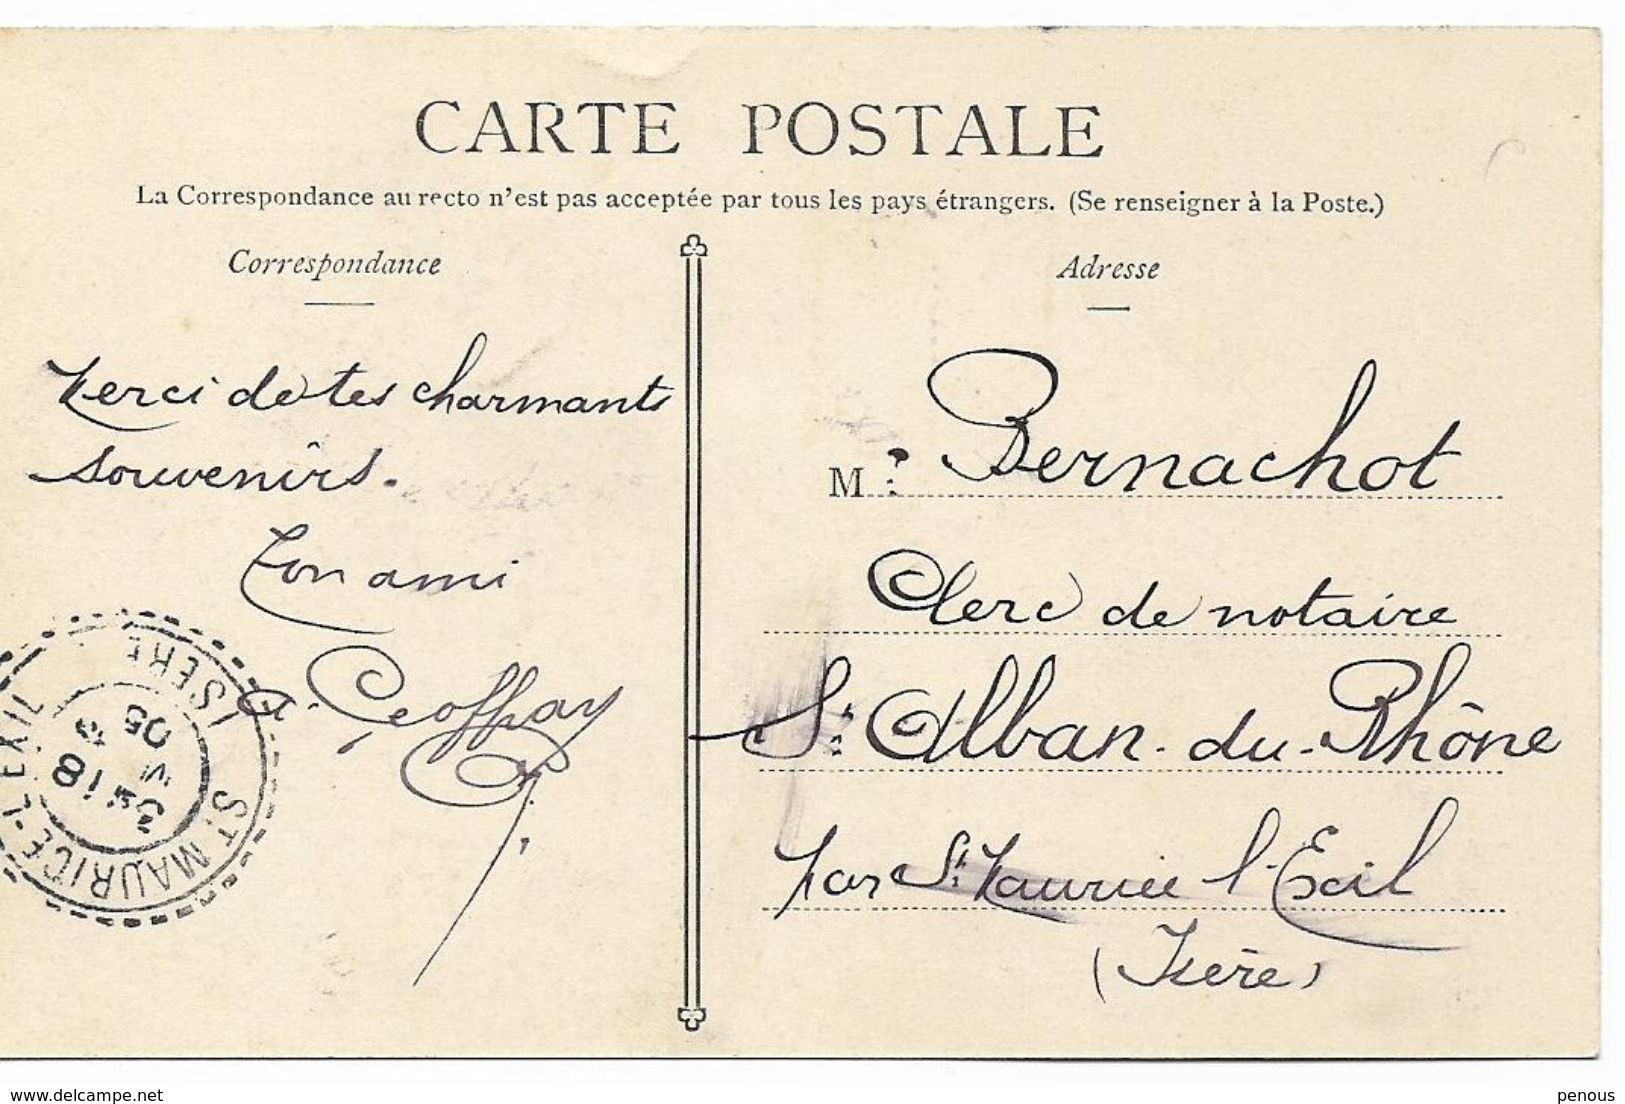 CARTE POSTALE
La Correspondance au recto n'est pas acceptée par tous les pays étrangers. (Se renseigner à la Poste.)
Correspondance
Merci de tes charmants
souvenirs.
Ton ami
A. Geoffray
Adresse
M. Bernachot
Clerc de notaire
St Alban-du-Rhône
par St Maurice l'Exil
(Isère)
ST MAURICE-L'EXIL
ISERE
18
05
delcampe.net
penous